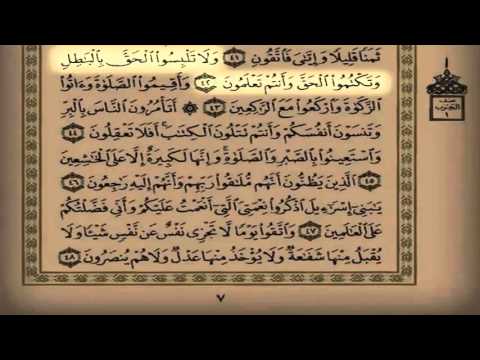 ثَمَنًا قَلِيلًا وَإِيَّٰىَ فَٱتَّقُونِ ٤١ وَلَا تَلْبِسُوا۟ ٱلْحَقَّ بِٱلْبَٰطِلِ
وَتَكْتُمُوا۟ ٱلْحَقَّ وَأَنتُمْ تَعْلَمُونَ ٤٢ وَأَقِيمُوا۟ ٱلصَّلَوٰةَ وَءَاتُوا۟
ٱلزَّكَوٰةَ وَٱرْكَعُوا۟ مَعَ ٱلرَّٰكِعِينَ ٤٣ ۞ أَتَأْمُرُونَ ٱلنَّاسَ بِٱلْبِرِّ
وَتَنسَوْنَ أَنفُسَكُمْ وَأَنتُمْ تَتْلُونَ ٱلْكِتَٰبَ أَفَلَا تَعْقِلُونَ ٤٤
وَٱسْتَعِينُوا۟ بِٱلصَّبْرِ وَٱلصَّلَوٰةِ وَإِنَّهَا لَكَبِيرَةٌ إِلَّا عَلَى ٱلْخَٰشِعِينَ
٤٥ ٱلَّذِينَ يَظُنُّونَ أَنَّهُم مُّلَٰقُوا۟ رَبِّهِمْ وَأَنَّهُمْ إِلَيْهِ رَٰجِعُونَ ٤٦
يَٰبَنِىٓ إِسْرَٰٓءِيلَ ٱذْكُرُوا۟ نِعْمَتِىَ ٱلَّتِىٓ أَنْعَمْتُ عَلَيْكُمْ وَأَنِّى فَضَّلْتُكُمْ
عَلَى ٱلْعَٰلَمِينَ ٤٧ وَٱتَّقُوا۟ يَوْمًا لَّا تَجْزِى نَفْسٌ عَن نَّفْسٍ شَيْـًٔا وَلَا
يُقْبَلُ مِنْهَا شَفَٰعَةٌ وَلَا يُؤْخَذُ مِنْهَا عَدْلٌ وَلَا هُمْ يُنصَرُونَ ٤٨
نصف
الحزب
١
٧